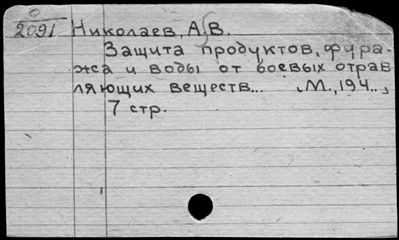 0
2091
Николаев, А.В.
Защита продуктов, фура-
жа и воды от боевых отрав
ляющих веществ... М., 194..,
7 стр.